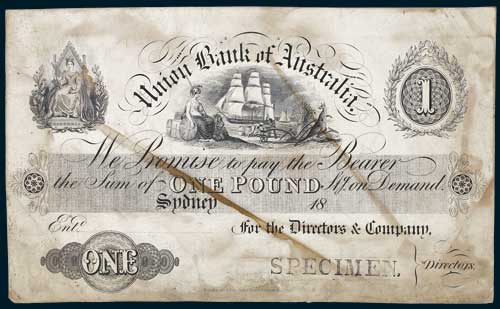 Union Bank of Australia,
1
VICTORIA
We Promise to pay the Bearer
the Sum of ONE POUND Stg. on Demand.
Sydney 18
Entd. For the Directors & Company,
ONE
SPECIMEN. Directors.